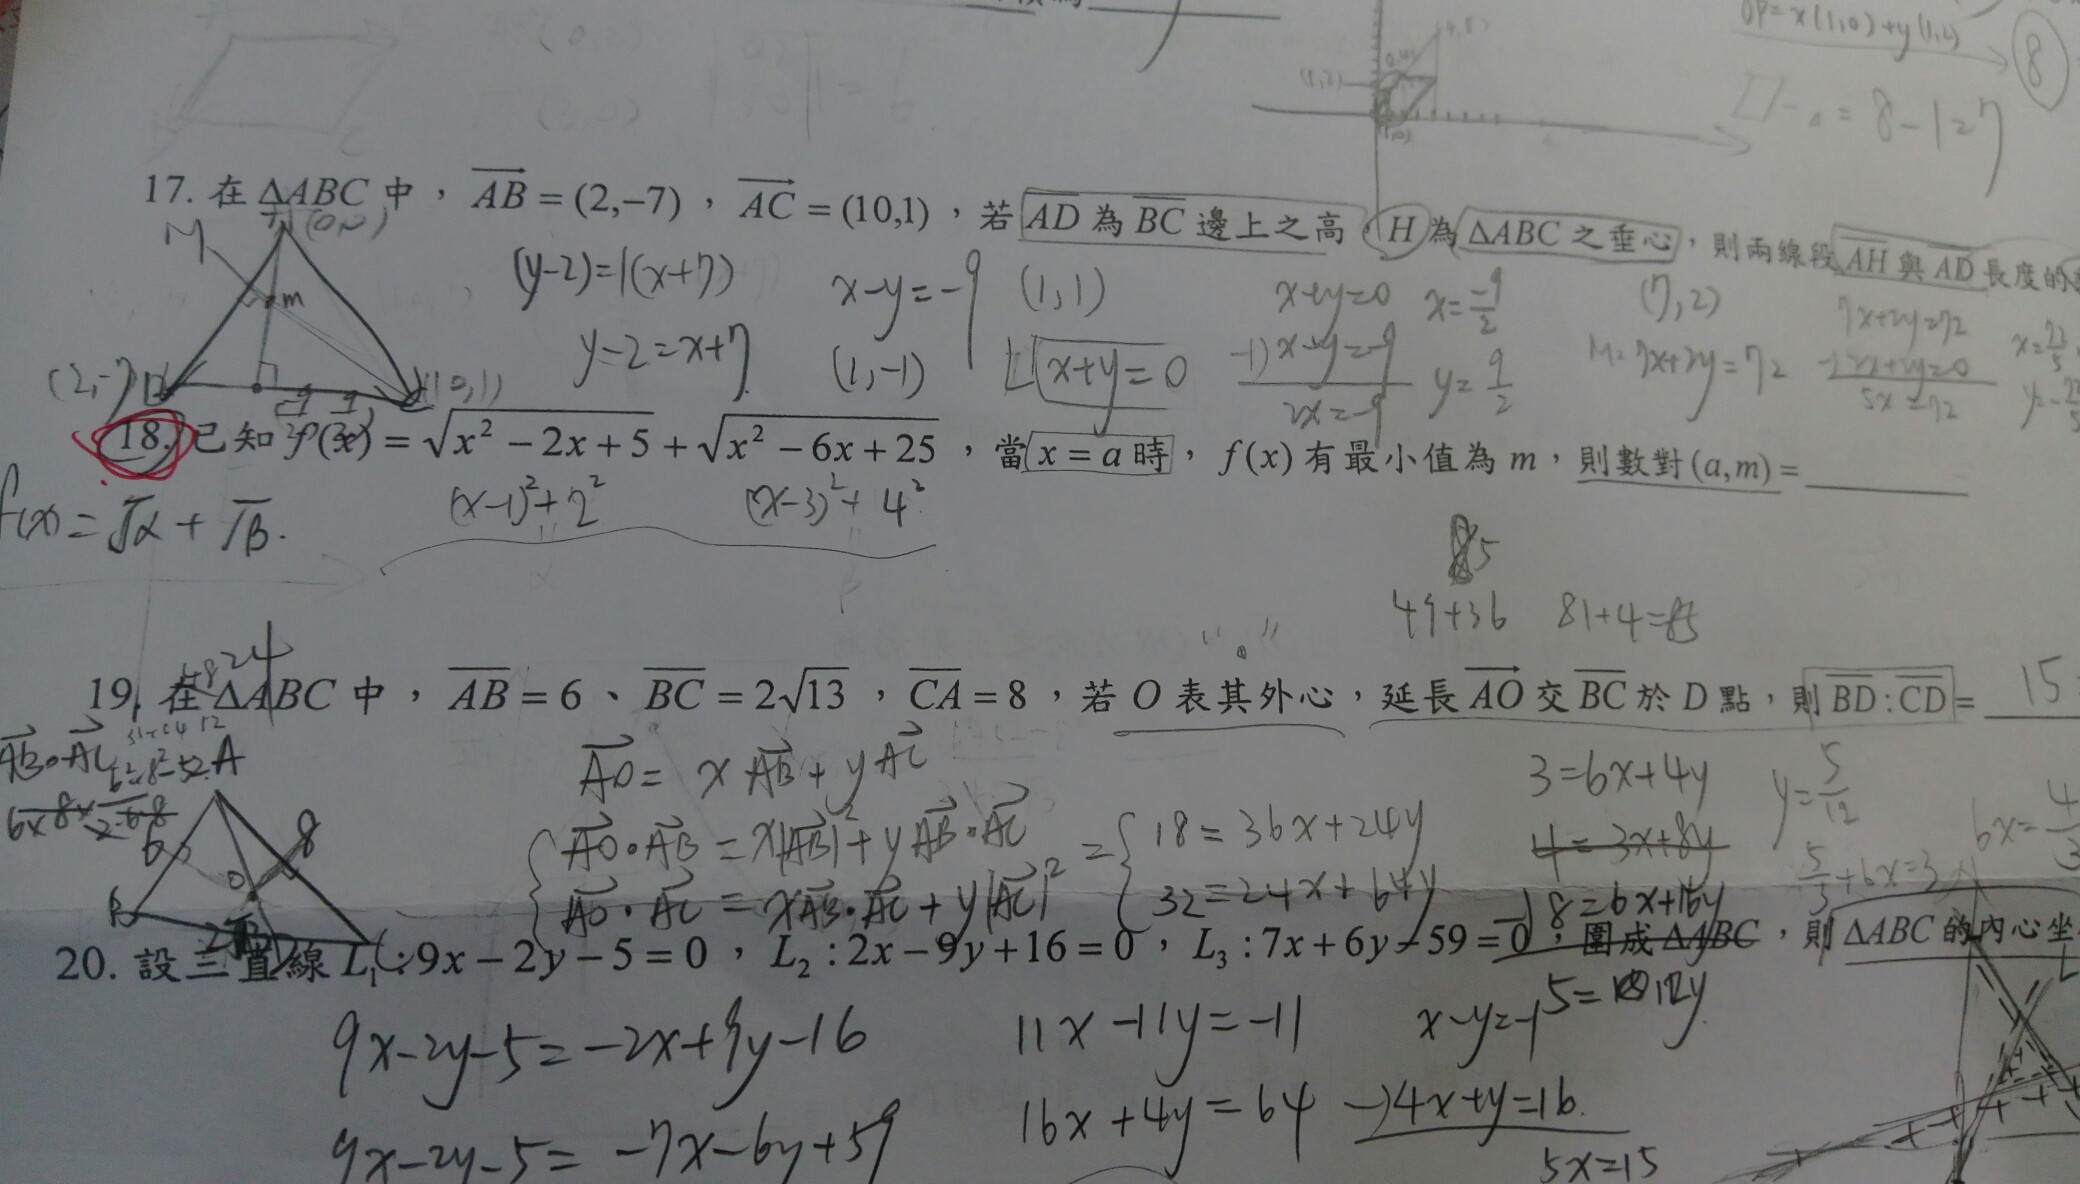 OP = x(1,0)+y(1,2)
8
= 8-1=7
17. 在 ΔABC 中，AB = (2,−7)，AC = (10,1)，若 AD 為 BC 邊上之高，H 為 ΔABC 之垂心，則兩線段 AH 與 AD 長度的
(0,0)
M
m
(2,-7)
(10,1)
(y-2)=1(x+7)
y-2=x+7
x-y=-9
(1,-1)
(1,1)
L x+y=0
x+y=0
-1) x-y=-9
2x=-9
x=-9/2
y=9/2
(7,2)
7x+2y=72
7x+2y=72
5x=72
18. 已知 f(x) = √(x² − 2x + 5) + √(x² − 6x + 25)，當 x = a 時，f(x) 有最小值為 m，則數對 (a,m) =
(x-1)²+2²
(x-3)²+4²
f(x)=√α + √β.
85
49+36
81+4=85
19. 在 ΔABC 中，AB = 6、BC = 2√13，CA = 8，若 O 表其外心，延長 AO 交 BC 於 D 點，則 BD : CD =
15
24
AB·AC
A
6
8
O
B
AO = xAB + yAC
AO·AB = x|AB|²+yAB·AC = 18=36x+24y
AO·AC = xAB·AC + y|AC|² 32=24x+64y
3=6x+4y
4=3x+8y
8=6x+16y
5=12y
y=5/12
5/3+6x=3
6x=4/3
20. 設三直線 L₁ : 9x − 2y − 5 = 0，L₂ : 2x − 9y + 16 = 0，L₃ : 7x + 6y − 59 = 0，圍成 ΔABC，則 ΔABC 的內心坐
9x-2y-5=-2x+9y-16
11x-11y=-11
x-y=-1
9x-2y-5=-7x-6y+59
16x+4y=64
-) 4x+y=16.
5x=15